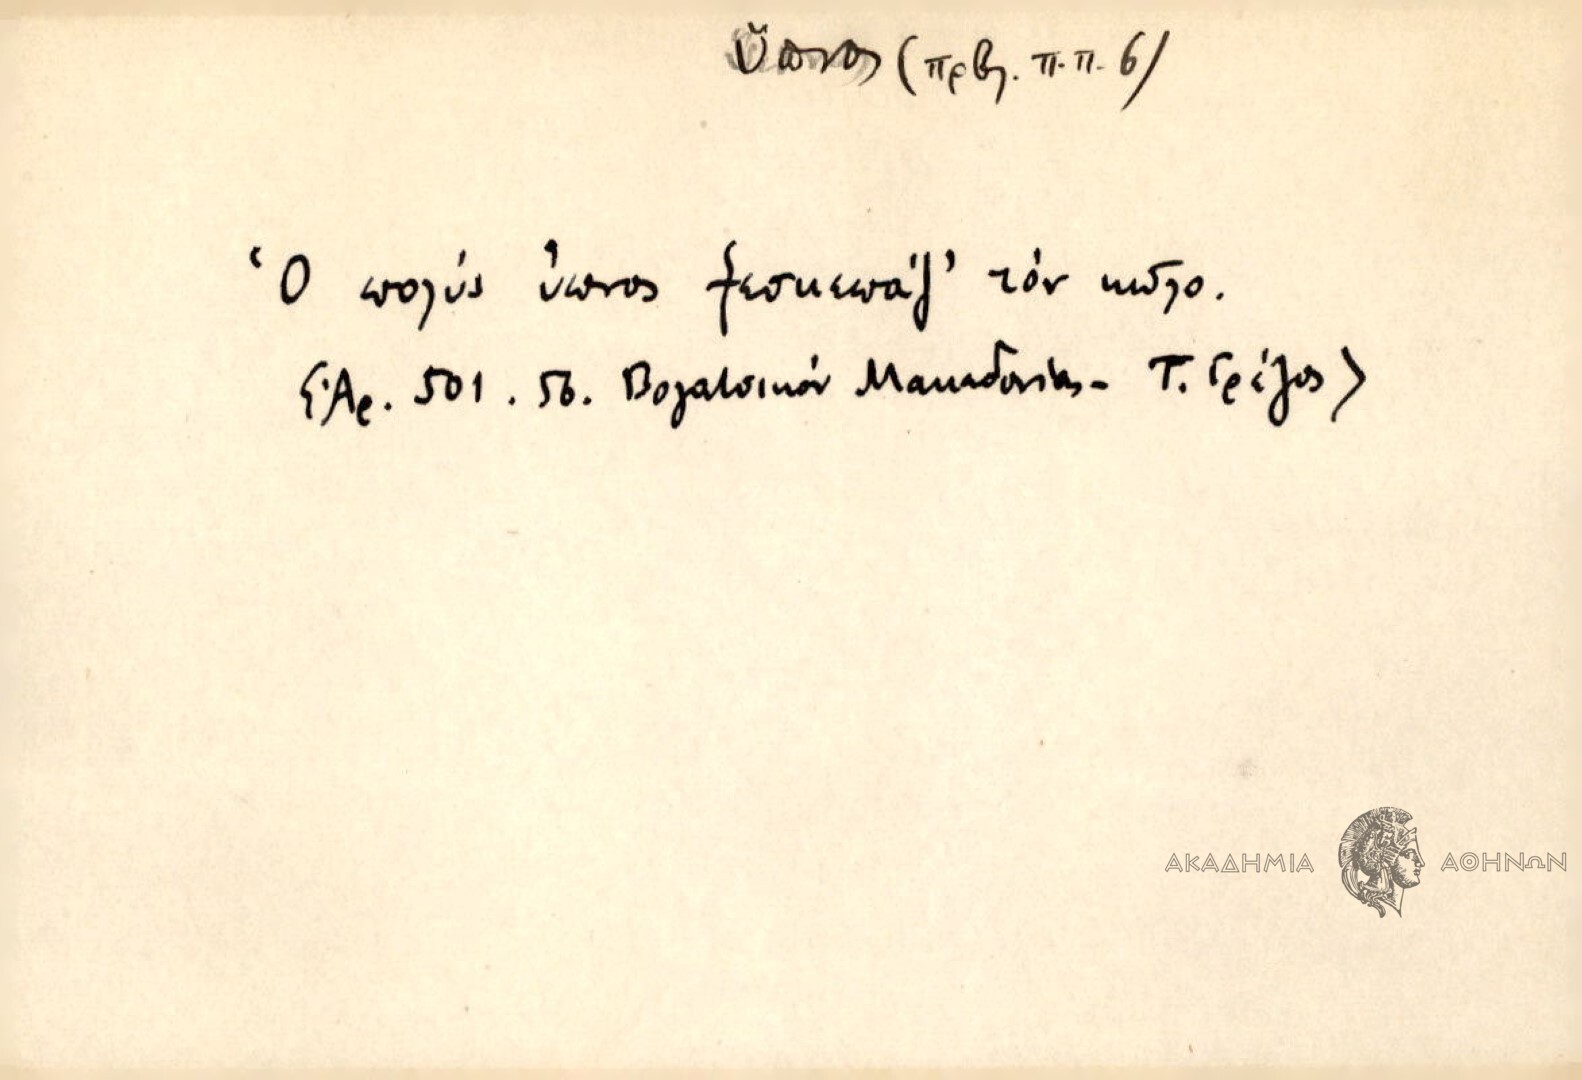 ὕπνος (πρβλ. π.π. 6)
Ὁ πολύς ὕπνος ξεσκεπάζ' τὸν κῶλο.
Ἀρ. 501. 56. Βογατσικόν Μακεδονίας - Τ. Γρέζος
ΑΚΑΔΗΜΙΑ ΑΘΗΝΩΝ